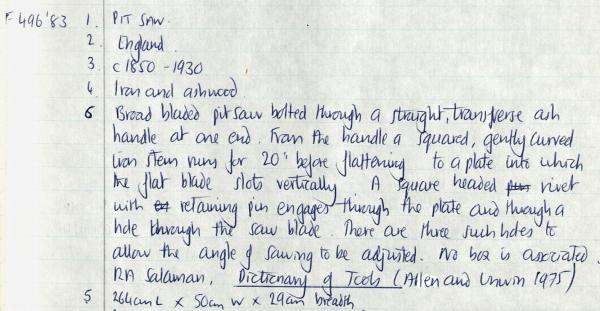 F 496'83 1. PIT SAW.
2. England.
3. c 1850 - 1930
4. Iron and ashwood
6 Broad bladed pit saw bolted through a straight, transverse ash
handle at one end. From the handle a squared, gently curved
iron stem runs for 20" before flattening to a plate into which
the flat blade slots vertically. A square headed rivet
with retaining pin engages through the plate and through a
hole through the saw blade. There are three such holes to
allow the angle of sawing to be adjusted. No box is associated.
RA Salaman, Dictionary of Tools (Allen and Unwin 1975)
5 264cm L x 50cm W x 29cm breadth